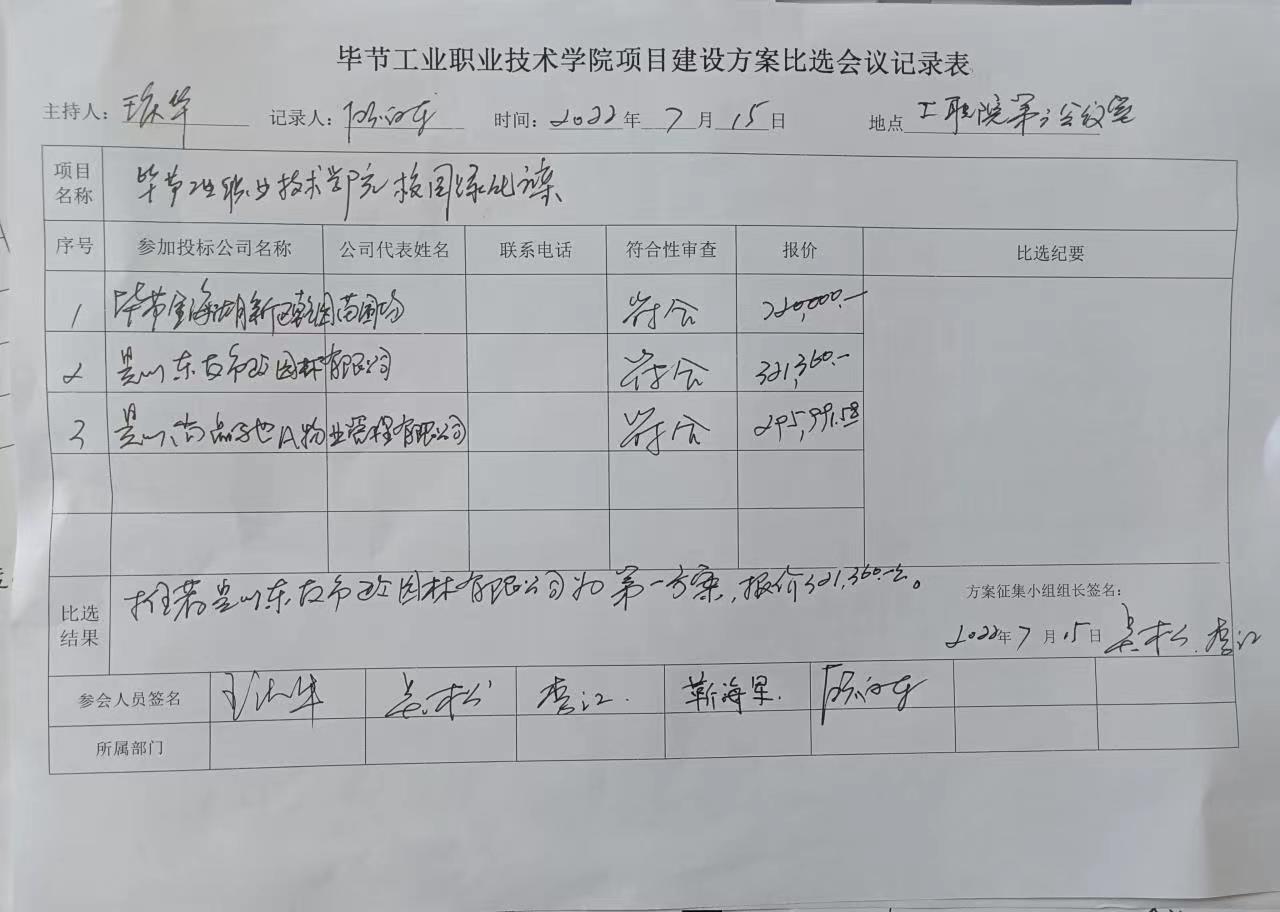 毕节工业职业技术学院项目建设方案比选会议记录表
主持人: 记录人: 时间:2022年7月15日 地点 工职院第 会议室
项目名称 毕节工业职业技术学院校园绿化
序号 参加投标公司名称 公司代表姓名 联系电话 符合性审查 报价 比选纪要
1 毕节金海湖新区 苗圃场 符合 320,000.—
2 贵州东 市政园林有限公司 符合 321,360.—
3 贵州尚品 物业管理有限公司 符合
比选结果 推荐贵州东 市政园林有限公司为第一方案,报价321,360.—元。
方案征集小组组长签名:
2022年7月15日 吴松 李江
参会人员签名 吴松 李江. 靳海军.
所属部门